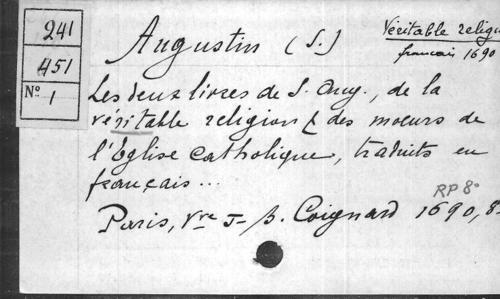 241
451
Nº 1
Augustin (S.)
Véritable relig
français 1690
Les deux livres de S. Aug., de la
véritable religion & des moeurs de
l'Eglise catholique, traduits en
français...
RP 8º
Paris, Vve J-B. Coignard 1690, 8